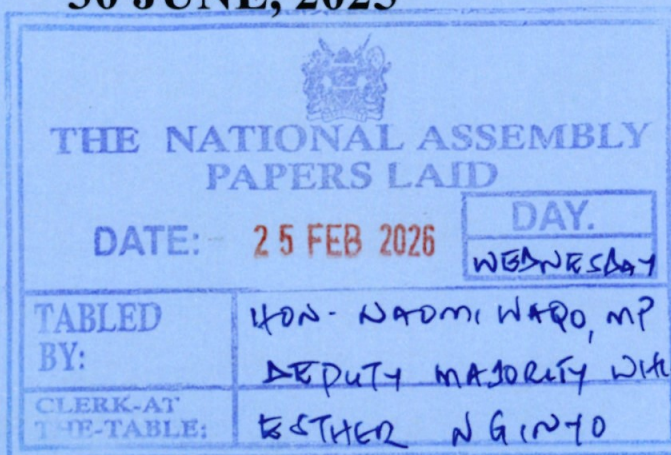 30 JUNE, 2025
THE NATIONAL ASSEMBLY
PAPERS LAID
DATE: 25 FEB 2026
DAY.
WEDNESDAY
TABLED BY: HON. NAOMI WAQO, MP
DEPUTY MAJORITY WHI
CLERK-AT THE-TABLE: ESTHER NGINYO